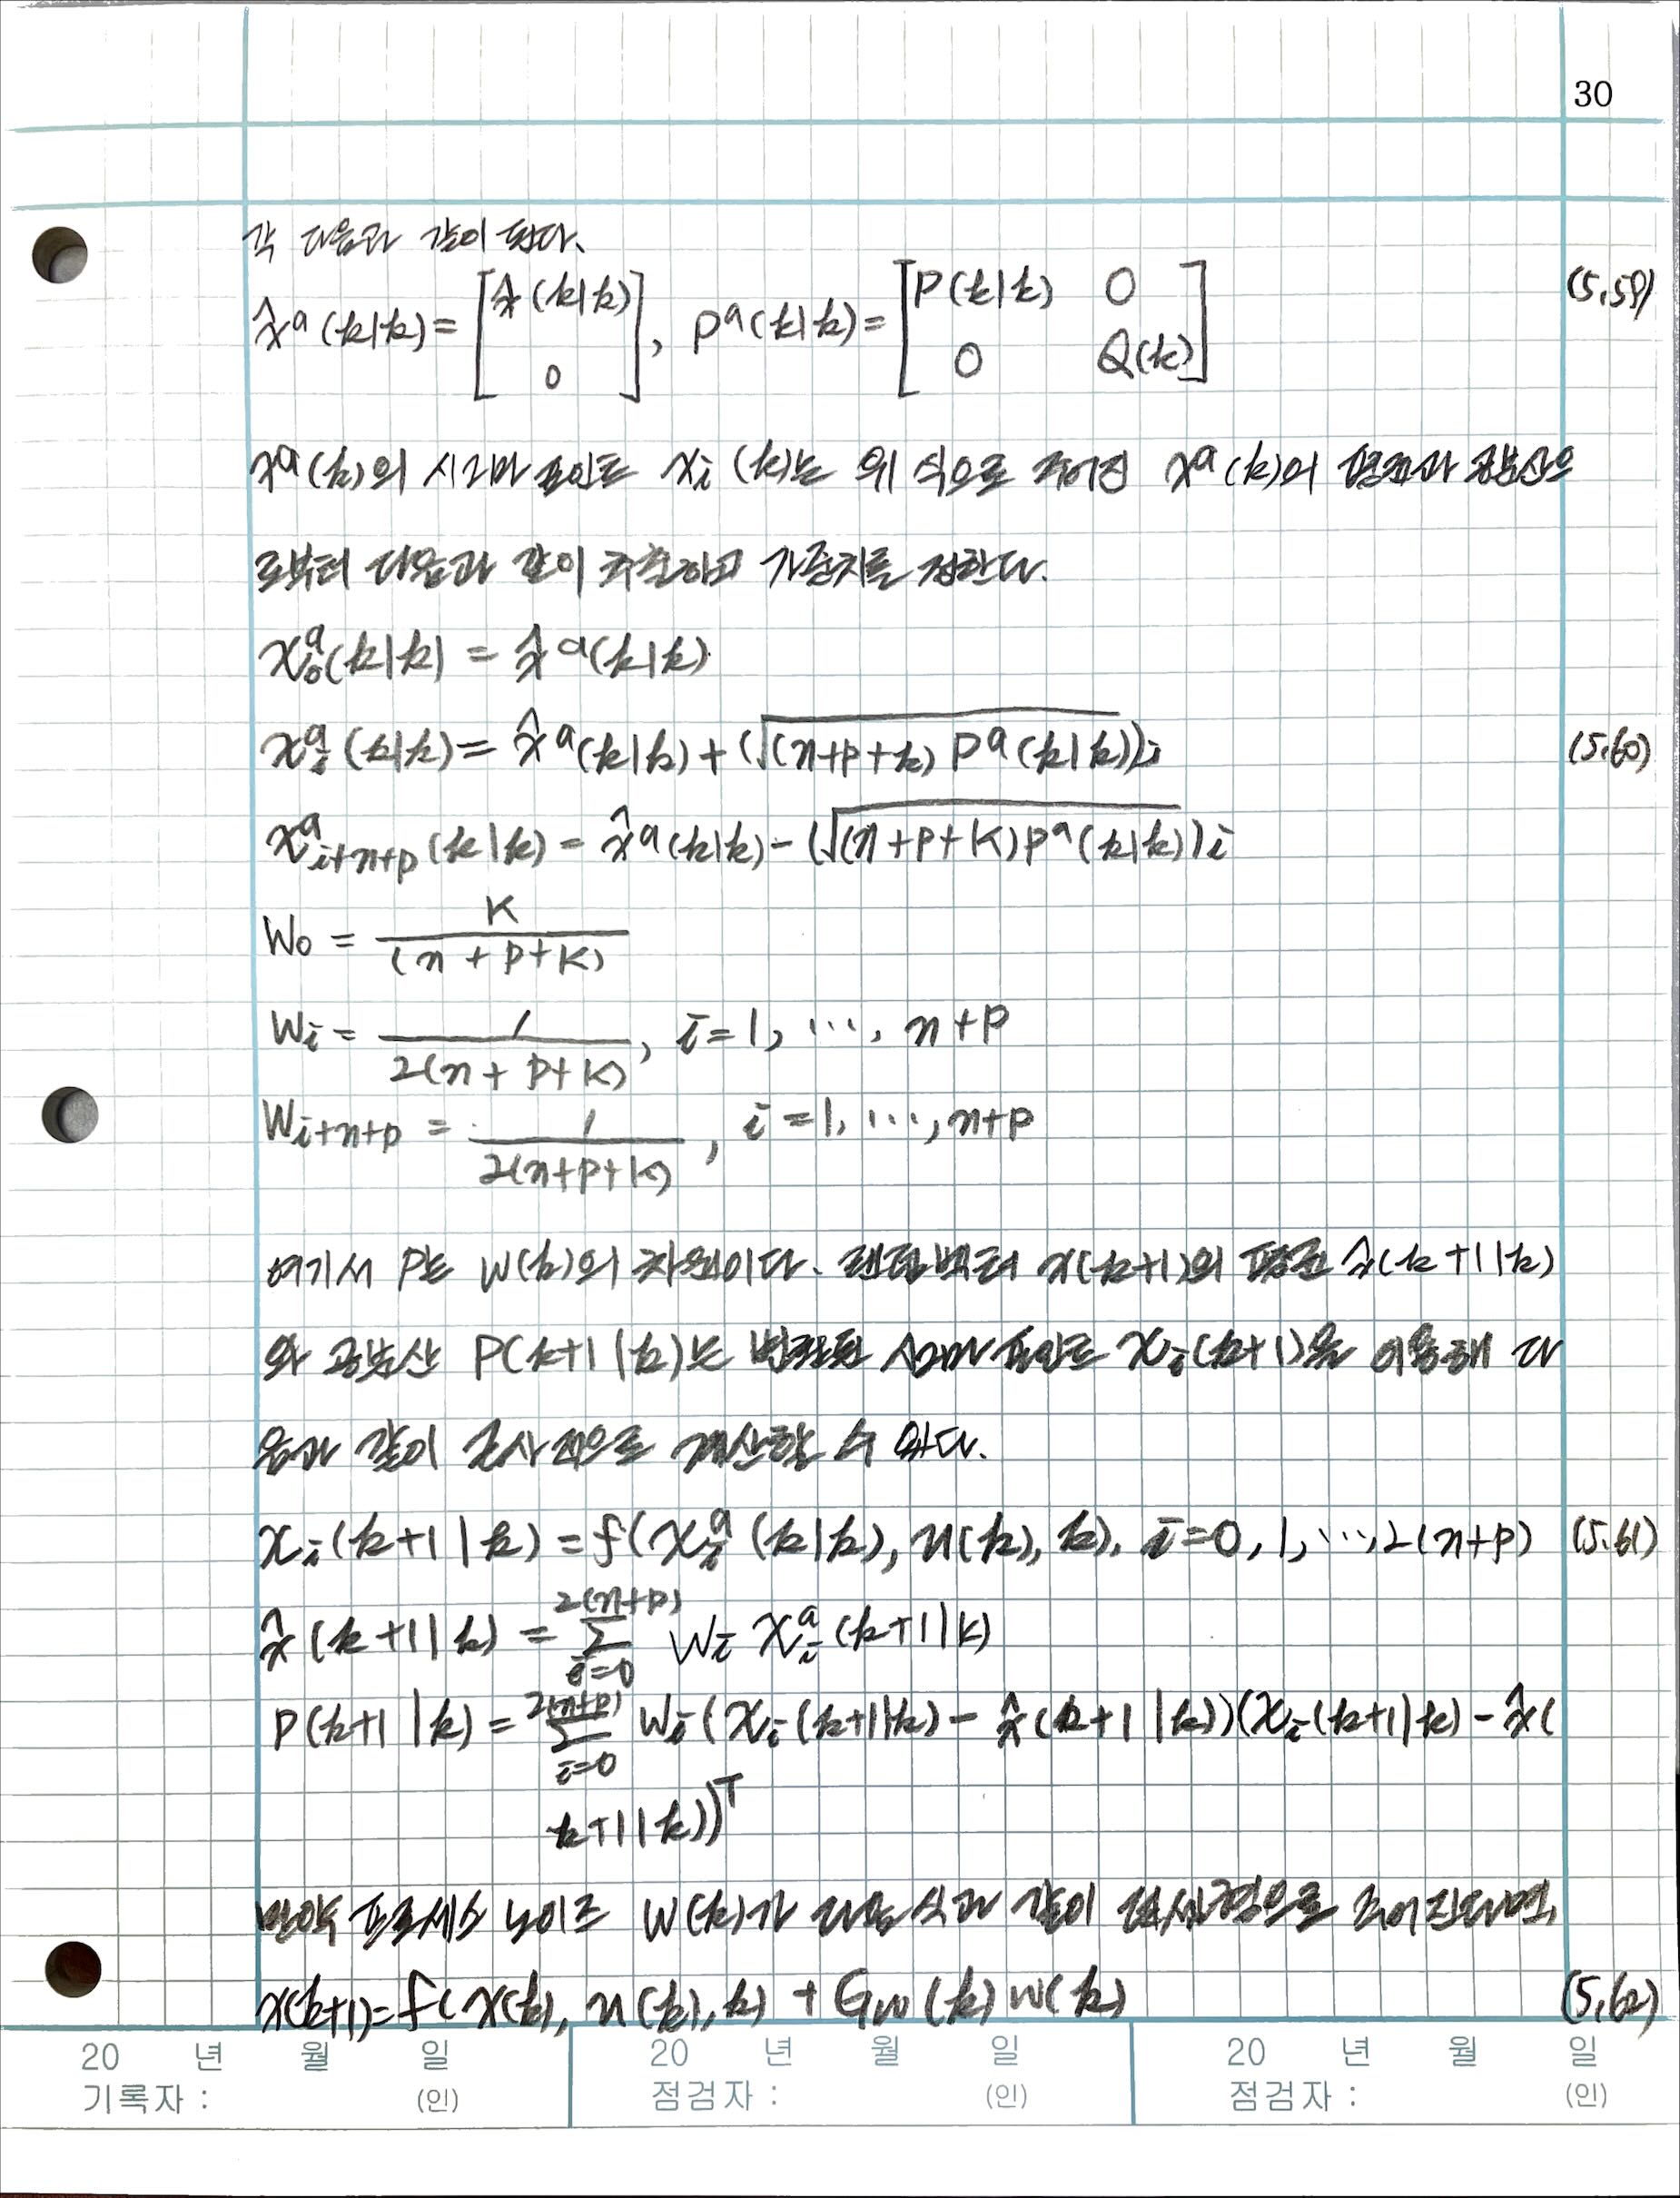 30
각 다음과 같이 된다.
x̂ᵃ(k|k) = [x̂(k|k) ; 0], Pᵃ(k|k) = [P(k|k) 0 ; 0 Q(k)] (5.59)
xᵃ(k)의 시그마 포인트 χi(k)는 위 식으로 주어진 xᵃ(k)의 평균과 공분산으
로부터 다음과 같이 추출하고 가중치를 정한다.
χ₀ᵃ(k|k) = x̂ᵃ(k|k)
χᵢᵃ(k|k) = x̂ᵃ(k|k) + (√((n+p+k) Pᵃ(k|k)))i (5.60)
χᵃ_{i+n+p}(k|k) = x̂ᵃ(k|k) - (√((n+p+K)Pᵃ(k|k)))i
W₀ = K / (n+p+K)
Wi = 1 / 2(n+p+K), i=1, ⋯, n+p
W_{i+n+p} = 1 / 2(n+p+K), i=1, ⋯, n+p
여기서 P는 w(k)의 차원이다. 랜덤벡터 x(k+1)의 평균 x̂(k+1|k)
와 공분산 P(k+1|k)는 변환된 시그마 포인트 χi(k+1)을 이용해 다
음과 같이 근사적으로 계산할 수 있다.
χi(k+1|k) = f(χᵢᵃ(k|k), u(k), k), i=0, 1, ⋯, 2(n+p) (5.61)
x̂(k+1|k) = Σ_{i=0}^{2(n+p)} Wi χᵢᵃ(k+1|k)
P(k+1|k) = Σ_{i=0}^{2(n+p)} Wi(χi(k+1|k) - x̂(k+1|k))(χi(k+1|k) - x̂(
k+1|k))ᵀ
만약 프로세스 노이즈 w(k)가 다음 식과 같이 덧셈형으로 주어진다면,
x(k+1)=f(x(k), u(k), k) + Gw(k)w(k) (5.62)
20 년 월 일 20 년 월 일 20 년 월 일
기록자 : (인) 점검자 : (인) 점검자 : (인)